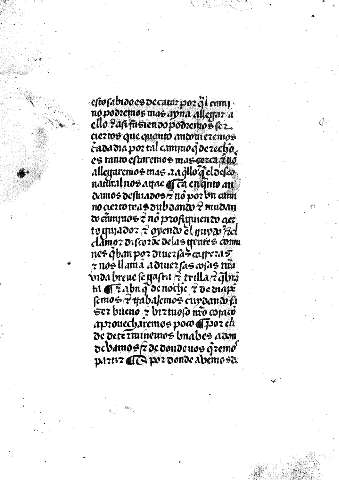 esto sabido es de catar por ql cami
no podremos mas ayna allegar a
ello ⁊ asi fasiendo podremos ser
ciertos que quanto andouieremos
cada dia por tal camino q̃ derecho
es tanto estaremos mas cerca ⁊ nos
allegaremos mas a aq̃llo q̃ el deseo
natural nos atrae ¶ Ca en q̃nto an
damos desuiados ⁊ nõ por vn cami
no cierto mas dubdando ⁊ mudan
do caminos ⁊ nõ prosiguiendo cier
to guiador ⁊ oyendo el ruydo ⁊ el
clamor discorde de las gentes comu
nes q̃ han por diuersas carreras
⁊ nos llama a diuersas cosas nr̃a
vida breue se gasta ⁊ trilla ⁊ q̃branta
⁊ abn q̃ de noche ⁊ de dia pẽ
semos ⁊ trabajemos cuydando fa
ser bueno ⁊ virtuoso nr̃o coraçõ
aprouecharemos poco ¶ por en
de determinemos bn a bes a don
de vamos ⁊ de donde nos q̃remos
partir ¶ ⁊ por donde abemos d